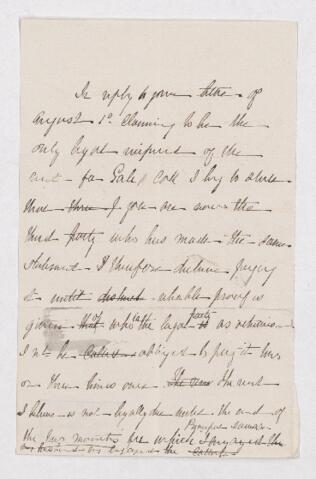 In reply to your letter of
August 1st claiming to be the
only legal recipient of the
rent for Gale Cott I beg to state
that you are now the
third party who has made the same
statement. I therefore decline paying
it until reliable proof is
given of who is the legal party as otherwise
I might be obliged to pay it two
or three times over. The rent
I believe is not legally due until the end of
the two months for which I engaged the